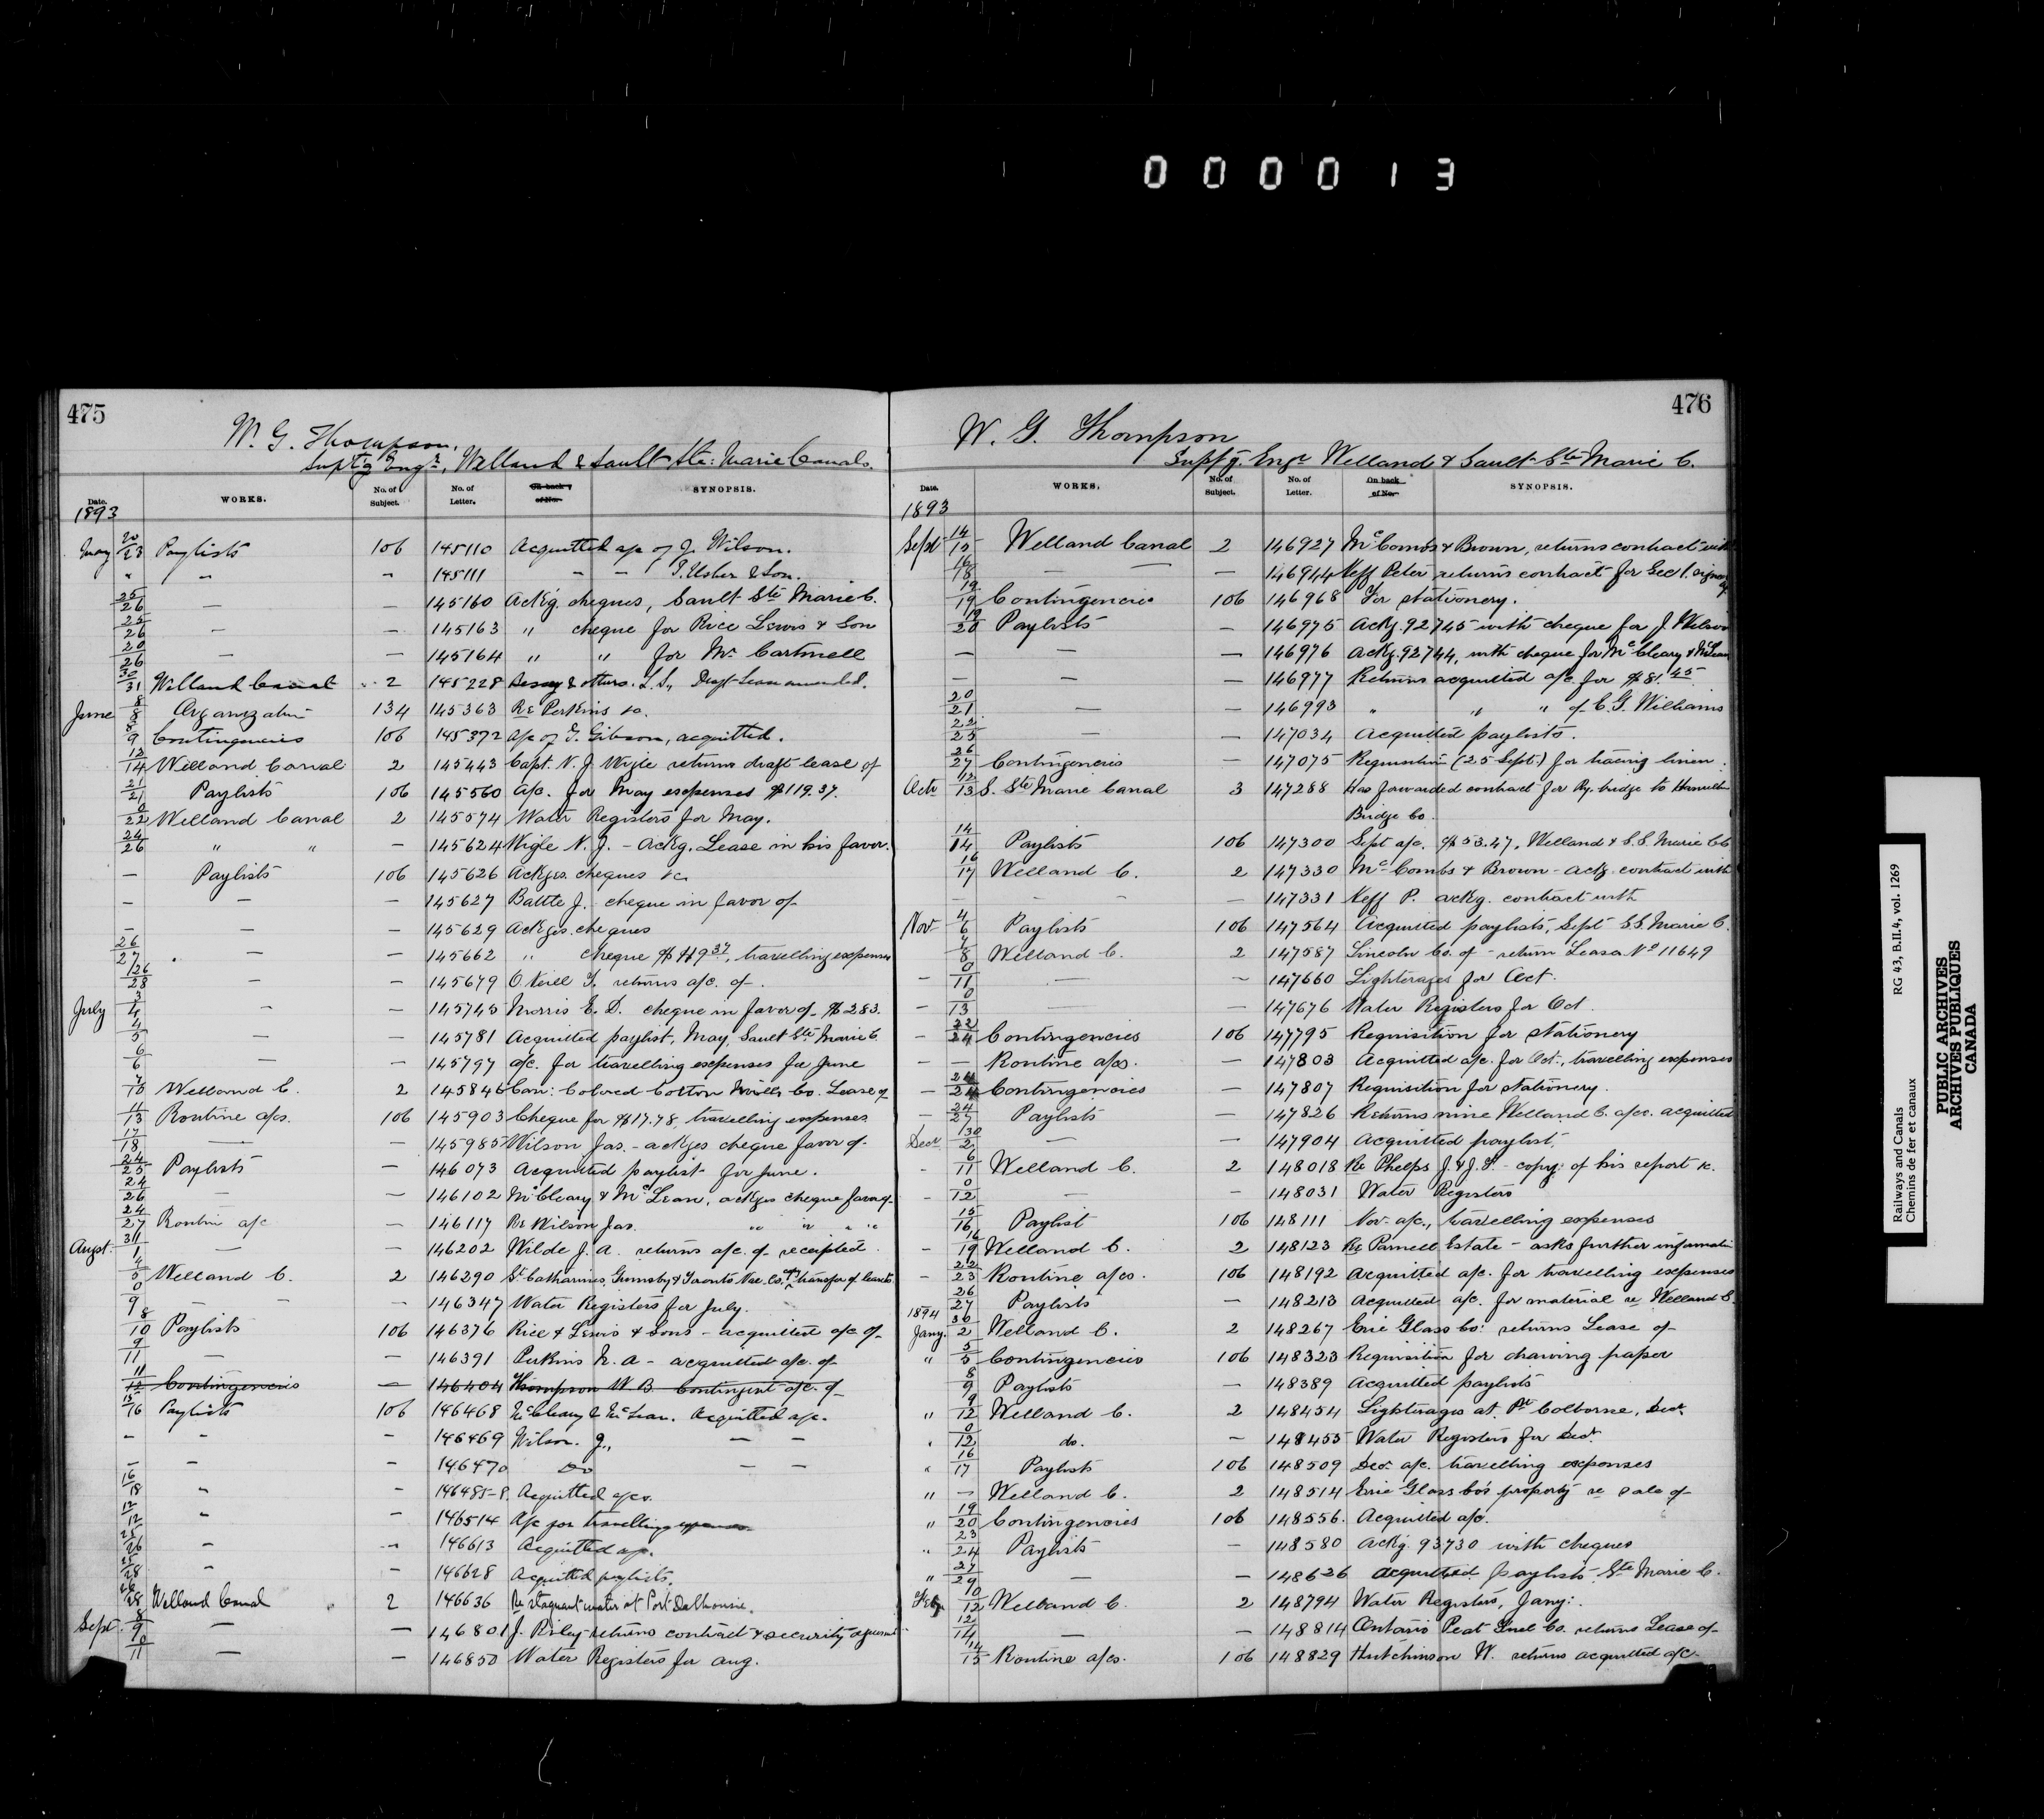 000013
475
W. G. Thompson.
Supt'g Engr, Welland & Sault Ste: Marie Canals.
Date. WORKS. No. of Subject. No. of Letter. On back of No. SYNOPSIS.
1893
May 20/23 Paylists 106 145110 Acquitted a/c of J. Wilson.
" " " 145111 — — T. Usher & Son.
25/26 — — 145160 Ackg. cheques, Sault Ste Marie C.
25/26 — — 145163 " cheque for Rice Lewis & Son
20/26 — — 145164 " " for Mr. Cartmell
30/31 Welland Canal 2 145228 & others. L.S., Draft Lease amended.
June 8/8 Organization 134 145363 Re Perkins &c.
8/9 Contingencies 106 145372 a/c of T. Gibson, acquitted.
12/14 Welland Canal 2 145443 Capt. N. J. Wigle returns draft lease of
21/21 Paylists 106 145560 a/c. for May expenses $119.37.
0/22 Welland Canal 2 145574 Water Registers for May.
24/26 " " — 145624 Wigle N. J. - Ackg. Lease in his favor.
— Paylists 106 145626 Ackges. cheques &c.
— — — 145627 Battle J. cheque in favor of
— — — 145629 Ackges. cheques
26/27 — — 145662 " cheque $119 37, travelling expenses
26/28 — — 145679 O'Neill T. returns a/c. of
July 3/4 — — 145745 Morris E. D. cheque in favor of $283.
4/5 — — 145781 Acquitted paylist, May, Sault Ste Marie C.
6/6 — — 145797 a/c. for travelling expenses for June
7/10 Welland C. 2 145846 Can: Colored Cotton Mills Co. Lease of
11/13 Routine a/cs. 106 145903 Cheque for $17.78, travelling expenses
17/18 — — 145985 Wilson Jas. - ackges cheque favor of
24/25 Paylists — 146073 Acquitted paylist for June.
24/26 — — 146102 McCleary & McLean, ackges cheque favor of
24/27 Routin a/c — 146117 Re Wilson Jas. " " " "
Augst. 31/1 — — 146202 Wilde J. A. returns a/c. of receipted
4/5 Welland C. 2 146290 St. Catharines, Grimsby & Toronto Nav. Co. of transfer of lease to
0/9 — — — 146347 Water Registers for July.
8/10 Paylists 106 146376 Rice & Lewis & Sons - acquitted a/c of
9/11 — — 146391 Perkins N. A - acquitted a/c. of
11/12 Contingencies — 146404 Thompson W. B. Contingent a/c. of
15/16 Paylists 106 146468 McCleary & McLean. Acquitted a/c.
— — — 146469 Wilson. J., — —
— — — 146470 Do — —
16/18 " — 146485-8. Acquitted a/cs.
12/12 " — 146514 A/c for travelling expenses
25/26 " — 146613 Acquitted a/c.
25/28 " — 146628 Acquitted paylists.
26/28 Welland Canal 2 146636 Re stagnant water at Port Dalhousie.
Sept. 8/9 — — 146801 J. Riley returns contract & security agreemt
9/11 — — 146850 Water Registers for Aug.
476
W. G. Thompson
Supt'g. Engr Welland & Sault Ste Marie C.
Date. WORKS. No. of Subject. No. of Letter. On back of No. SYNOPSIS.
1893
Sept 14/15 Welland Canal 2 146927 McCombs & Brown, returns contract with
16/18 — — — 146944 Neff Peter returns contract for Sec 1. signed
19/19 Contingencies 106 146968 For stationery.
19/20 Paylists — 146975 Ackg. 92745 with cheque for J. Wilson
— — — 146976 Ackg. 92744, with cheque for McCleary & McLean
— — — 146977 Returns acquitted a/c. for $81.45
20/21 — — 146993 " " " of C. G. Williams
22/25 — — 147034 Acquitted paylists.
26/27 Contingencies — 147075 Requisition (25 Sept.) for tracing linen.
Oct 12/13 S. Ste Marie Canal 3 147288 Has forwarded contract for Ry. bridge to Hamilton
Bridge Co.
14/14 Paylists 106 147300 Sept a/c. $53.47, Welland & S.S. Marie Cls
16/17 Welland C. 2 147330 McCombs & Brown - ackg. contract with
— — — 147331 Neff P. ackg. contract with
Nov. 4/6 Paylists 106 147564 Acquitted paylists, Sept S.S. Marie C.
7/8 Welland C. 2 147587 Lincoln Co. of - return Lease No 11649
— 0/11 — — 147660 Lighterages for Oct.
— 0/13 — — 147676 Water Registers for Oct.
— 22/24 Contingencies 106 147795 Requisition for stationery
— — Routine a/cs. — 147803 Acquitted a/c. for Oct., travelling expenses
— 24/24 Contingencies — 147807 Requisition for stationery.
— 24/27 Paylists — 147826 Returns nine Welland C. a/cs. acquitted
Decr 30/2 — — 147904 Acquitted paylist.
- 6/11 Welland C. 2 148018 Re Phelps J. & J. F. - copy: of his report &c.
- 0/12 — — 148031 Water Registers
15/16 Paylist 106 148111 Nov. a/c., travelling expenses
- 16/19 Welland C. 2 148123 Re Parnell Estate - asks further informatin
- 22/23 Routine a/cs. 106 148192 Acquitted a/c. for travelling expenses
26/27 Paylists — 148213 Acquitted a/c. for material re Welland C.
1894
Jany. 30/2 Welland C. 2 148267 Erie Glass Co: returns Lease of
" 5/5 Contingencies 106 148323 Requisition for drawing paper
8/9 Paylists — 148389 Acquitted paylists
" 9/12 Welland C. 2 148454 Lighterages at Pt Colborne, Decr.
" 0/12 do. — 148455 Water Registers for Decr.
" 16/17 Paylists 106 148509 Decr. a/c. travelling expenses
" — Welland C. 2 148514 Erie Glass Co's property re sale of
" 19/20 Contingencies 106 148556. Acquitted a/c.
" 23/24 Paylists — 148580 Ackg. 93730 with cheques
" 27/29 — — 148626 Acquitted paylists Ste Marie C.
Feby 0/12 Welland C. 2 148794 Water Registers, Jany:.
12/14 — — 148814 Ontario Peat Fuel Co. returns Lease of
14/15 Routine a/cs. 106 148829 Hutchinson W. returns acquitted a/c.
Railways and Canals RG 43, B.II.4, vol. 1269
Chemins de fer et canaux
PUBLIC ARCHIVES
ARCHIVES PUBLIQUES
CANADA